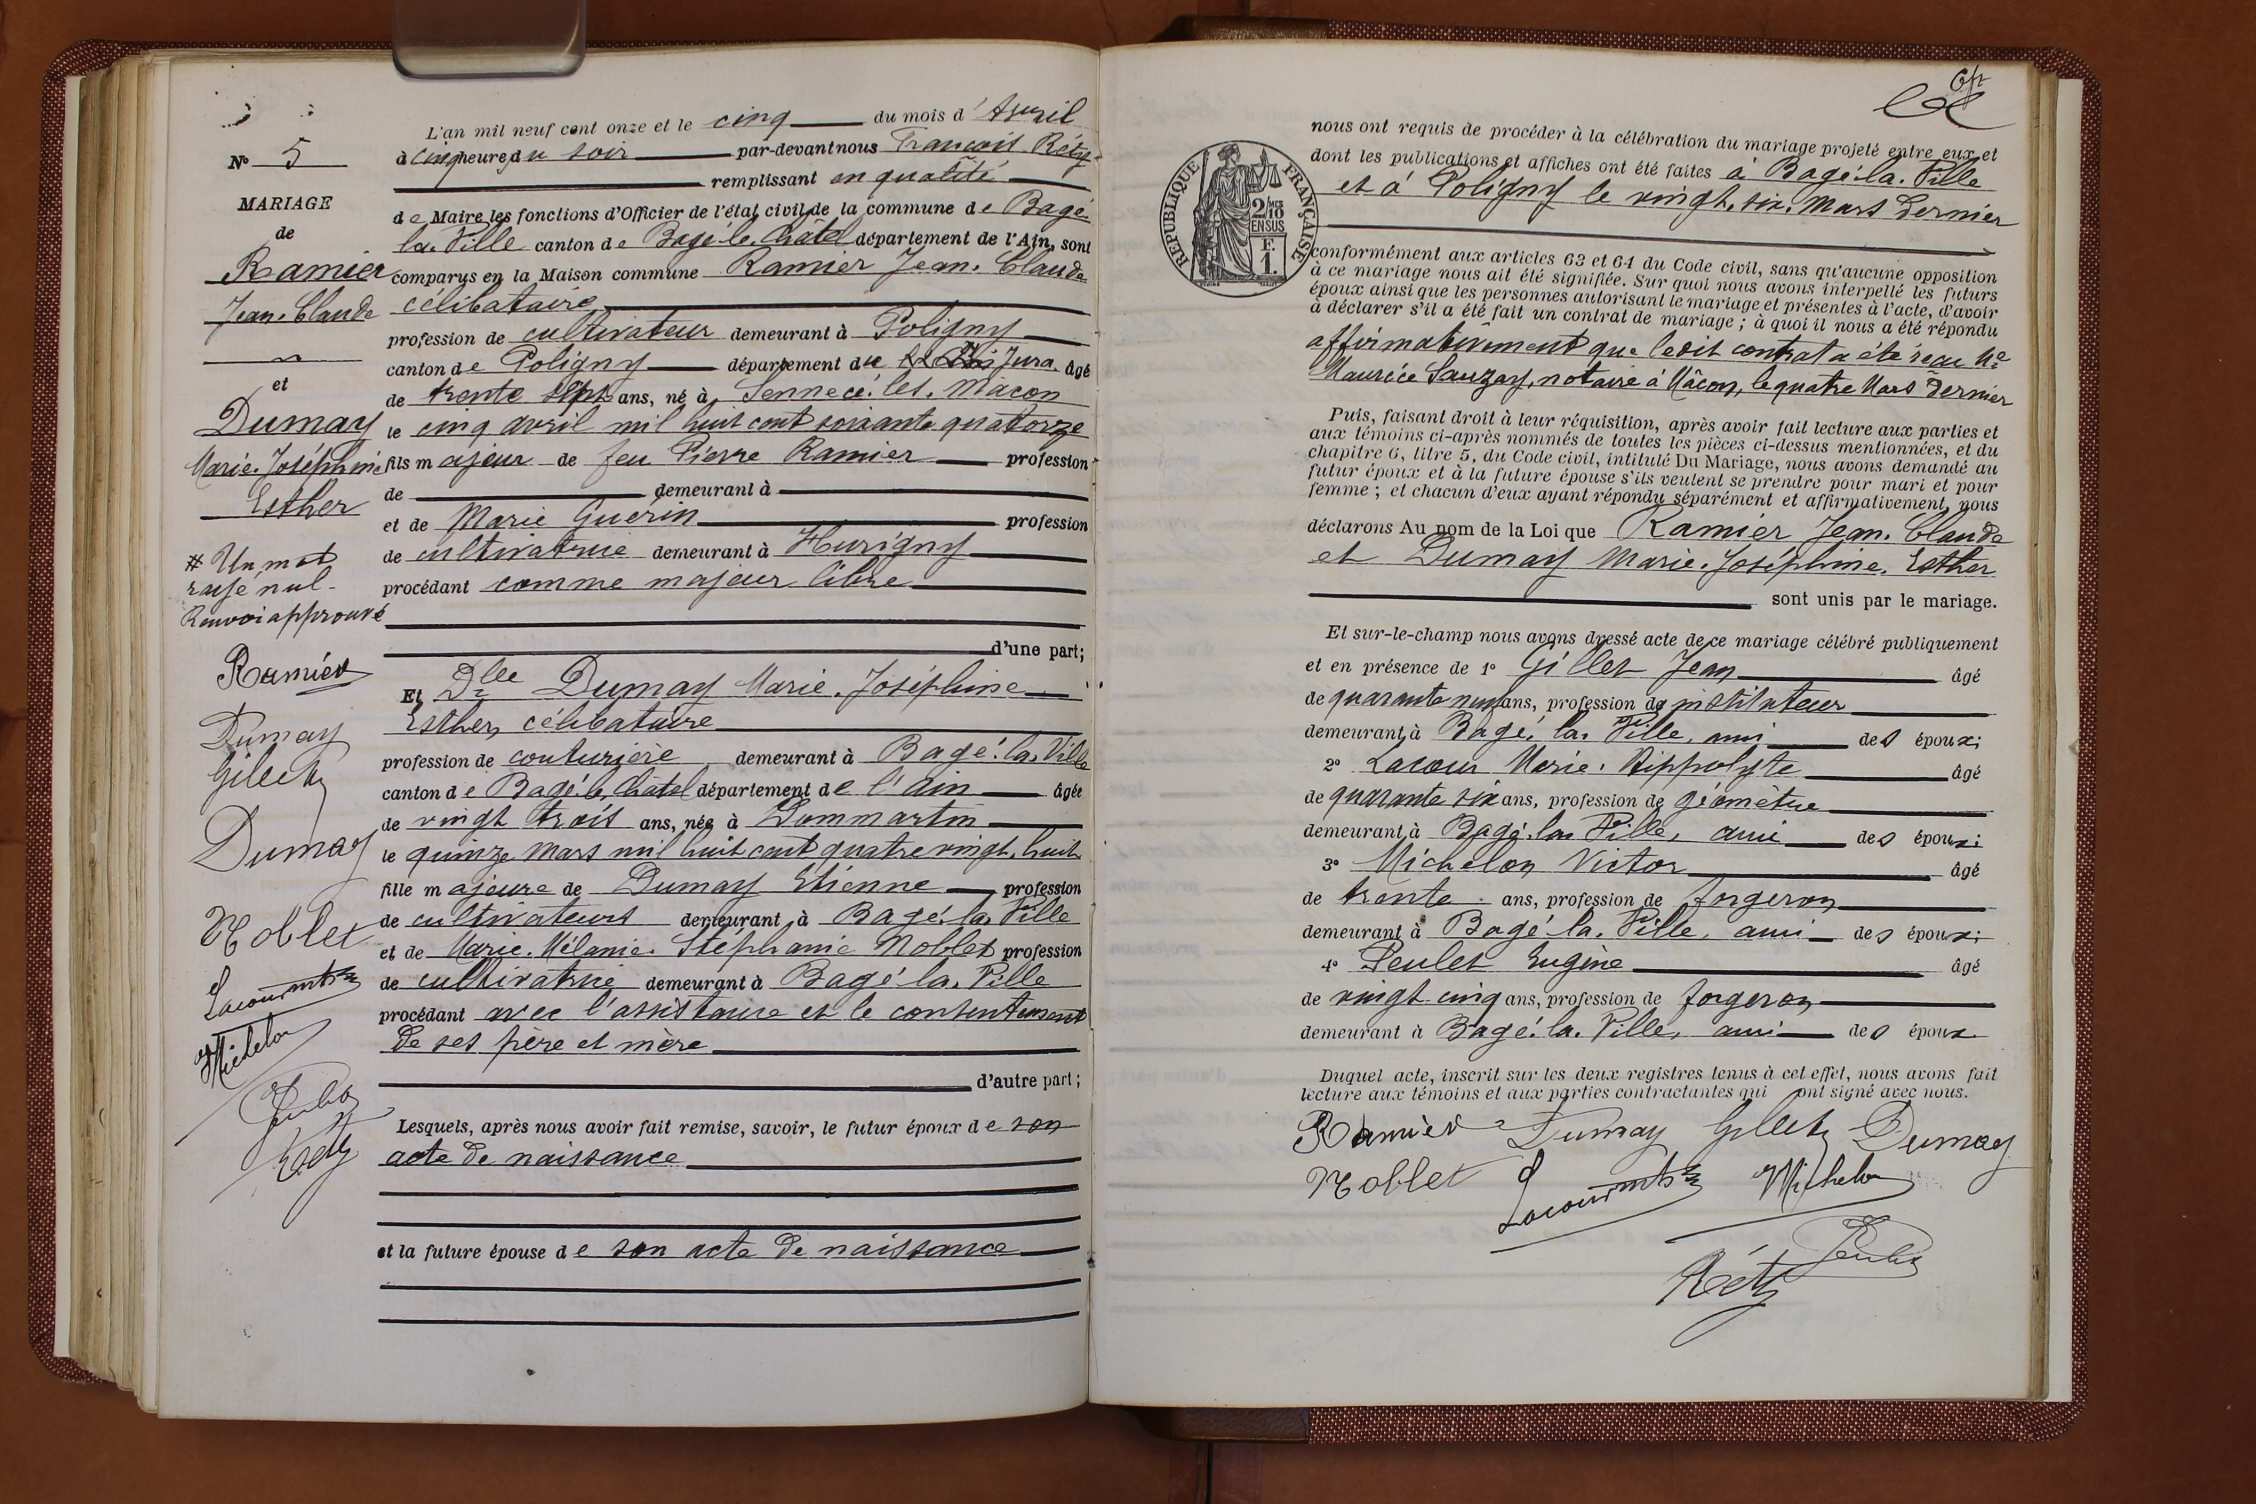 N° 5
MARIAGE
de
Ramier
Jean-Claude
et
Dumay
Marie-Joséphine
Esther
# Un mot
rayé nul.
Renvoi approuvé
Ramier
Dumay
Gillet
Dumay
Noblet
Lacour
Michelon
Peulet
Réty
L'an mil neuf cent onze et le cinq du mois d'Avril
à cinq heures du soir par-devant nous François Réty
remplissant en qualité
de Maire les fonctions d'Officier de l'état civil de la commune de Bagé-
la-Ville canton de Bagé-le-Châtel département de l'Ain, sont
comparus en la Maison commune Ramier Jean-Claude
célibataire
profession de cultivateur demeurant à Poligny
canton de Poligny département du Jura âgé
de trente sept ans, né à Sennecé-les-Macon
le cinq avril mil huit cent soixante quatorze
fils majeur de feu Pierre Ramier profession
de demeurant à
et de Marie Guerin profession
de cultivatrice demeurant à Hurigny
procédant comme majeur libre
d'une part;
Et Dlle Dumay Marie-Joséphine
Esther, célibataire
profession de couturière demeurant à Bagé-la-Ville
canton de Bagé-le-Châtel département de l'Ain âgée
de vingt trois ans, née à Dommartin
le quinze mars mil huit cent quatre vingt-huit
fille majeure de Dumay Etienne profession
de cultivateurs demeurant à Bagé-la-Ville
et de Marie-Mélanie-Stéphanie Noblet profession
de cultivatrice demeurant à Bagé-la-Ville
procédant avec l'assistance et le consentement
de ses père et mère
d'autre part;
Lesquels, après nous avoir fait remise, savoir, le futur époux de son
acte de naissance
et la future épouse de son acte de naissance
RÉPUBLIQUE FRANÇAISE
2/10
EN SUS
F.
1.
nous ont requis de procéder à la célébration du mariage projeté entre eux et
dont les publications et affiches ont été faites à Bagé-la-Ville
et à Poligny le vingt-six Mars dernier
conformément aux articles 63 et 64 du Code civil, sans qu'aucune opposition
à ce mariage nous ait été signifiée. Sur quoi nous avons interpellé les futurs
époux ainsi que les personnes autorisant le mariage et présentes à l'acte, d'avoir
à déclarer s'il a été fait un contrat de mariage; à quoi il nous a été répondu
affirmativement que ledit contrat a été reçu Me
Maurice Sauzay, notaire à Mâcon, le quatre Mars dernier
Puis, faisant droit à leur réquisition, après avoir fait lecture aux parties et
aux témoins ci-après nommés de toutes les pièces ci-dessus mentionnées, et du
chapitre 6, titre 5, du Code civil, intitulé Du Mariage, nous avons demandé au
futur époux et à la future épouse s'ils veulent se prendre pour mari et pour
femme; et chacun d'eux ayant répondu séparément et affirmativement, nous
déclarons Au nom de la Loi que Ramier Jean-Claude
et Dumay Marie-Joséphine-Esther
sont unis par le mariage.
Et sur-le-champ nous avons dressé acte de ce mariage célébré publiquement
et en présence de 1° Gillet Jean âgé
de quarante neuf ans, profession de instituteur
demeurant à Bagé-la-Ville, ami des époux;
2° Lacour Marie-Hippolyte âgé
de quarante six ans, profession de géomètre
demeurant à Bagé-la-Ville, ami des époux;
3° Michelon Victor âgé
de trente ans, profession de forgeron
demeurant à Bagé-la-Ville, ami des époux;
4° Peulet Eugène âgé
de vingt-cinq ans, profession de forgeron
demeurant à Bagé-la-Ville, ami des époux
Duquel acte, inscrit sur les deux registres tenus à cet effet, nous avons fait
lecture aux témoins et aux parties contractantes qui ont signé avec nous.
Ramier Dumay Gillet Dumay
Noblet Lacour Michelon
Peulet
Réty